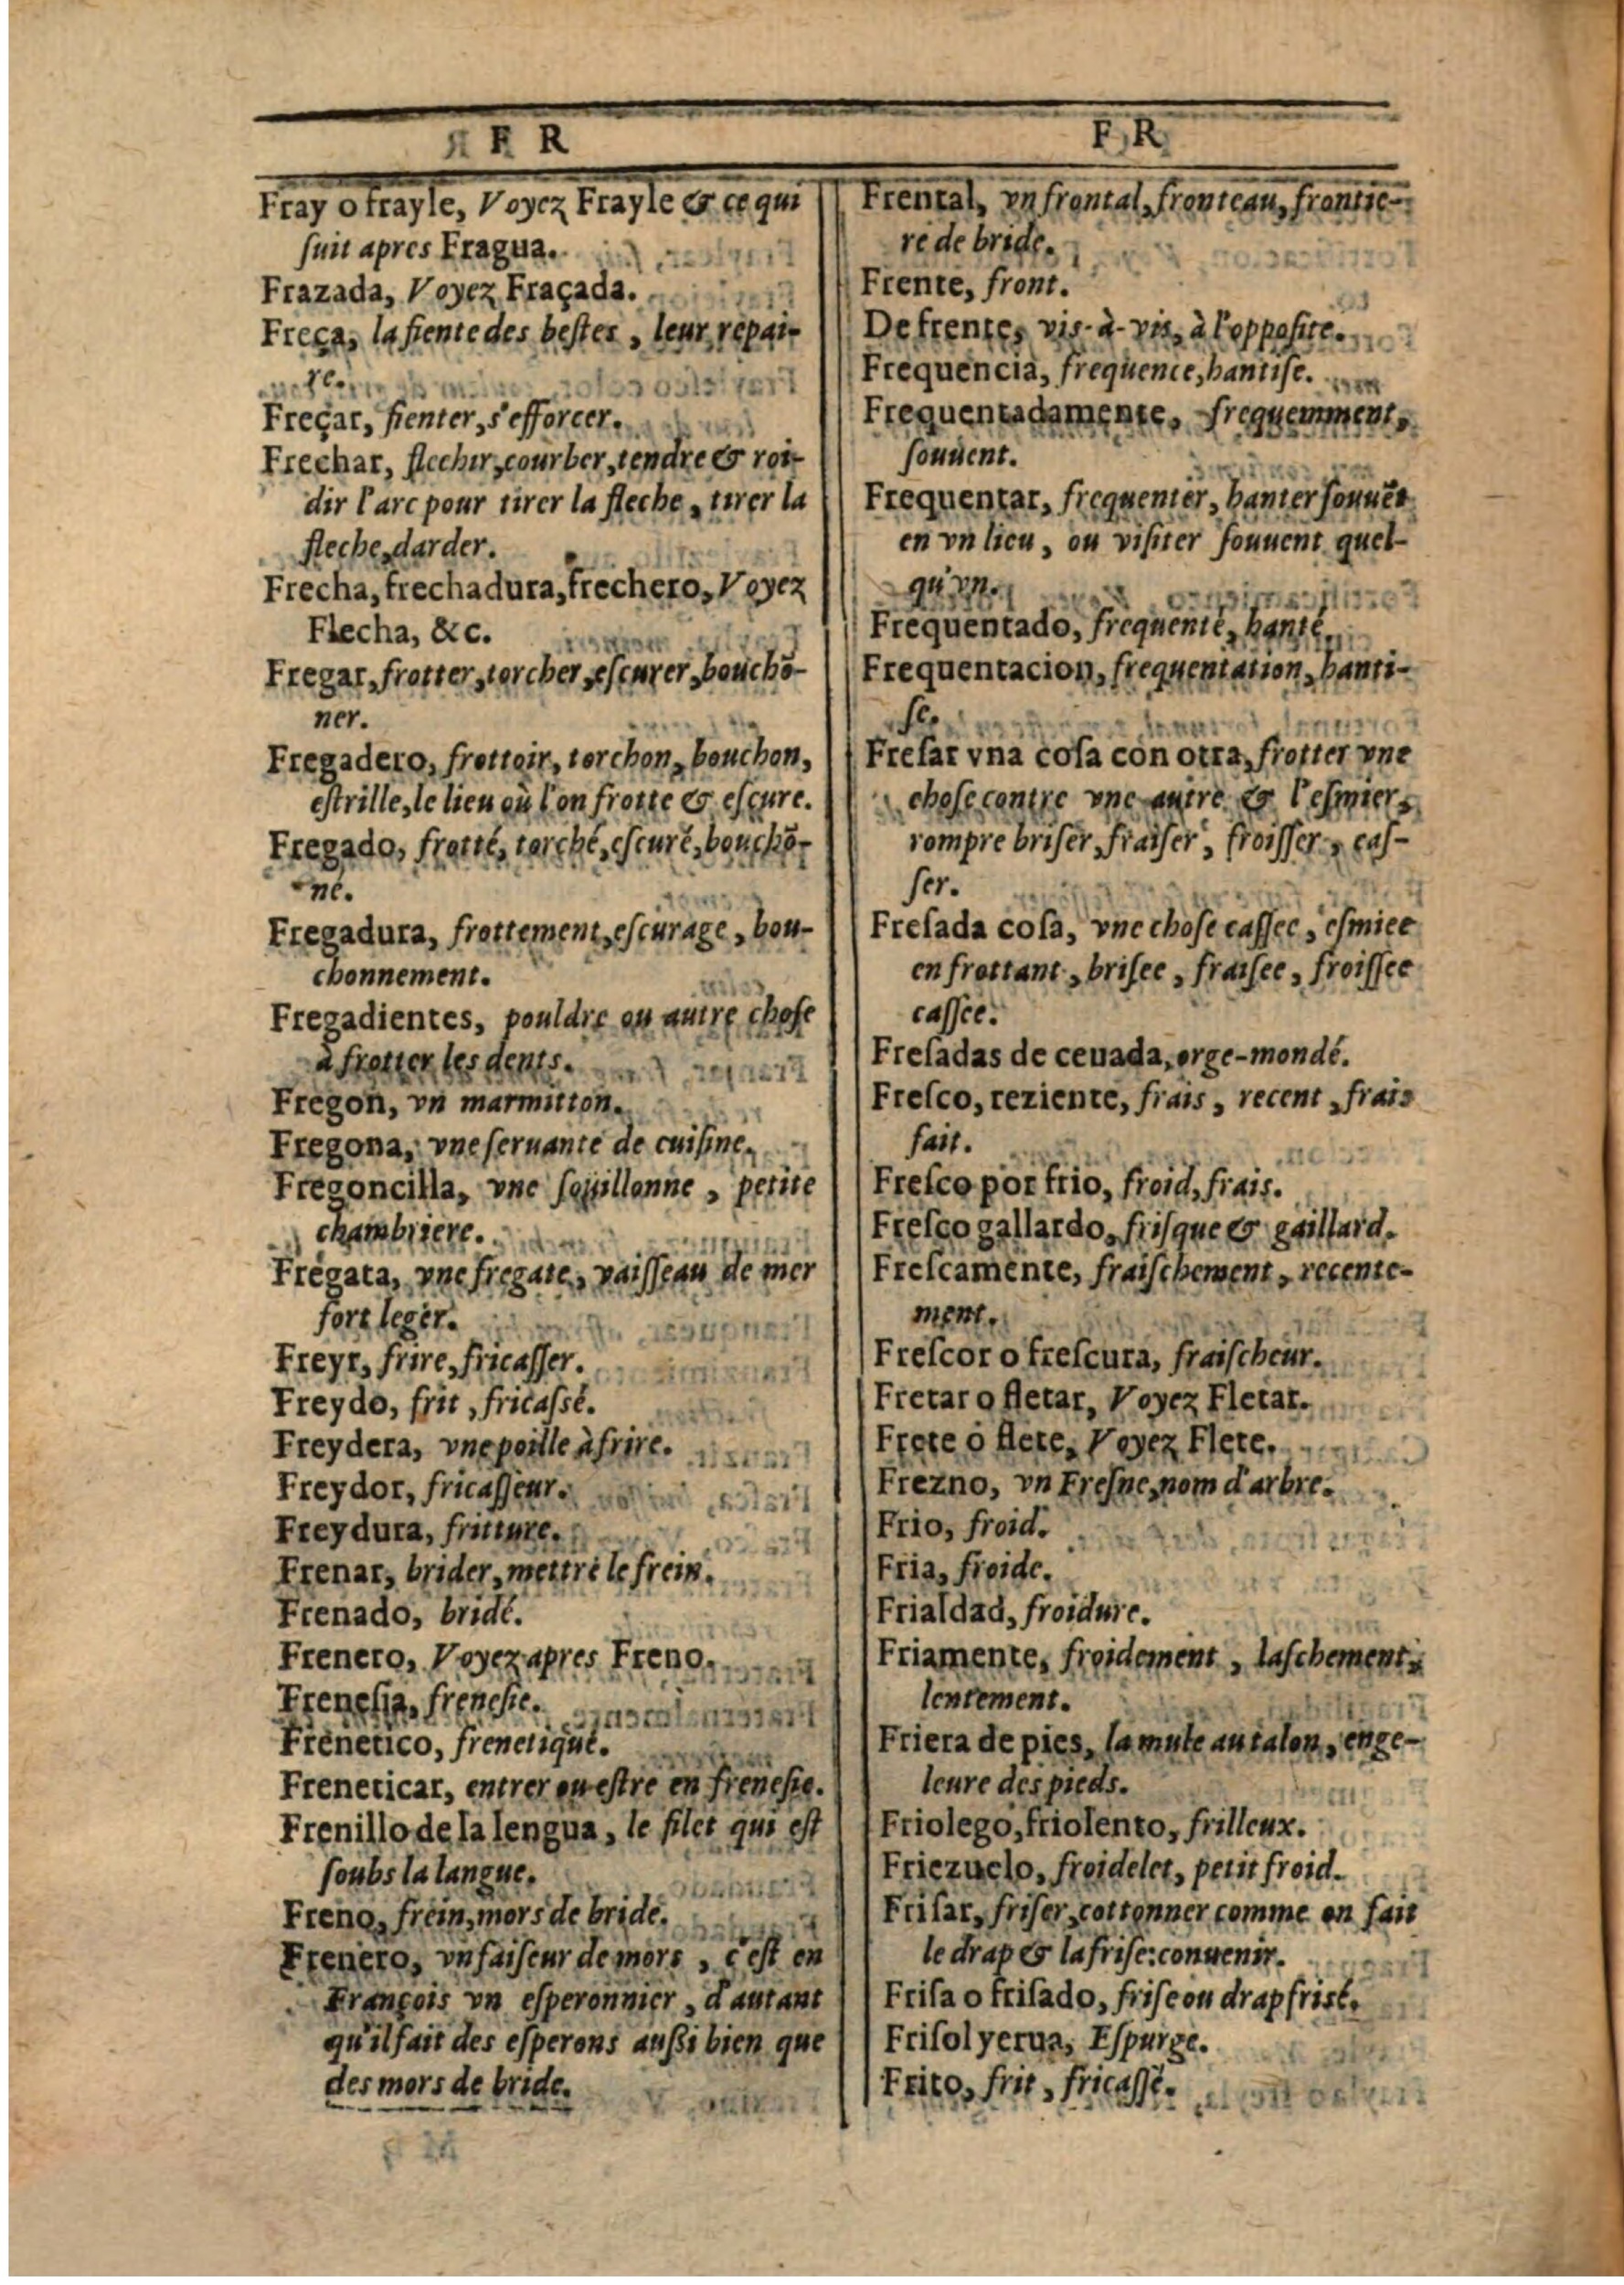 F R
Fray o frayle, Voyez Frayle & ce qui
ſuit apres Fragua.
Frazada, Voyez Fraçada.
Freça, la fiente des beſtes, leur repai-
re.
Freçar, fienter, s'efforcer.
Frechar, flechir, courber, tendre & roi-
dir l'arc pour tirer la fleche, tirer la
fleche, darder.
Frecha, frechadura, frechero, Voyez
Flecha, &c.
Fregar, frotter, torcher, eſcurer, bouchõ-
ner.
Fregadero, frottoir, torchon, bouchon,
eſtrille, le lieu où l'on frotte & eſcure.
Fregado, frotté, torché, eſcuré, bouchõ-
né.
Fregadura, frottement, eſcurage, bou-
chonnement.
Fregadientes, pouldre ou autre choſe
à frotter les dents.
Fregon, vn marmitton.
Fregona, vne ſeruante de cuiſine.
Fregoncilla, vne ſouillonne, petite
chambriere.
Fregata, vne fregate, vaiſſeau de mer
fort leger.
Freyr, frire, fricaſſer.
Freydo, frit, fricaſsé.
Freydera, vne poille à frire.
Freydor, fricaſſeur.
Freydura, fritture.
Frenar, brider, mettre le frein.
Frenado, bridé.
Frenero, Voyez apres Freno.
Freneſia, freneſie.
Frenetico, frenetique.
Freneticar, entrer ou eſtre en freneſie.
Frenillo de la lengua, le filet qui eſt
ſoubs la langue.
Freno, frein, mors de bride.
Frenero, vn faiſeur de mors, c'eſt en
François vn eſperonnier, d'autant
qu'il fait des eſperons auſsi bien que
des mors de bride.
F R
Frental, vn frontal, fronteau, frontie-
re de bride.
Frente, front.
De frente, vis-à-vis, à l'oppoſite.
Frequencia, frequence, hantiſe.
Frequentadamente, frequemment,
ſouuent.
Frequentar, frequenter, hanter ſouuẽt
en vn lieu, ou viſiter ſouuent quel-
qu'vn.
Frequentado, frequenté, hanté.
Frequentacion, frequentation, hanti-
ſe.
Freſar vna coſa con otra, frotter vne
choſe contre vne autre & l'eſmier,
rompre briſer, fraiſer, froiſſer, caſ-
ſer.
Freſada coſa, vne choſe caſſee, eſmiee
en frottant, briſee, fraiſee, froiſſee
caſſee.
Freſadas de ceuada, orge-mondé.
Freſco, reziente, frais, recent, frais
fait.
Freſco por frio, froid, frais.
Freſco gallardo, friſque & gaillard.
Freſcamente, fraiſchement, recente-
ment.
Freſcor o freſcura, fraiſcheur.
Fretar o fletar, Voyez Fletar.
Frete o flete, Voyez Flete.
Frezno, vn Freſne, nom d'arbre.
Frio, froid.
Fria, froide.
Frialdad, froidure.
Friamente, froidement, laſchement,
lentement.
Friera de pies, la mule au talon, enge-
leure des pieds.
Friolego, friolento, frilleux.
Friezuelo, froidelet, petit froid.
Friſar, friſer, cottonner comme on fait
le drap & la friſe: conuenir.
Friſa o friſado, friſe ou drap friſé.
Friſol yerua, Eſpurge.
Frito, frit, fricaſſé.